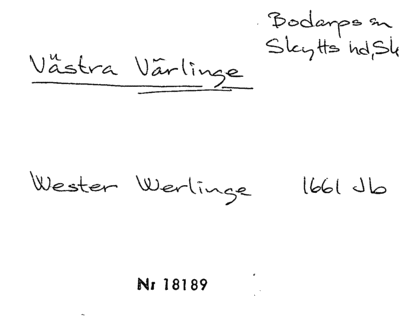 Bodarps sn
Skytts hd, Sk
Västra Värlinge
Wester Werlinge 1661 Jb
Nr 18189